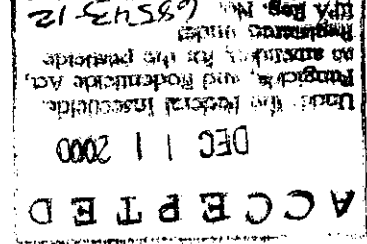 ACCEPTED
DEC 11 2000
Under the Federal Insecticide,
Fungicide, and Rodenticide Act,
as amended, for the pesticide
Registered under
EPA Reg. No. 68543-12